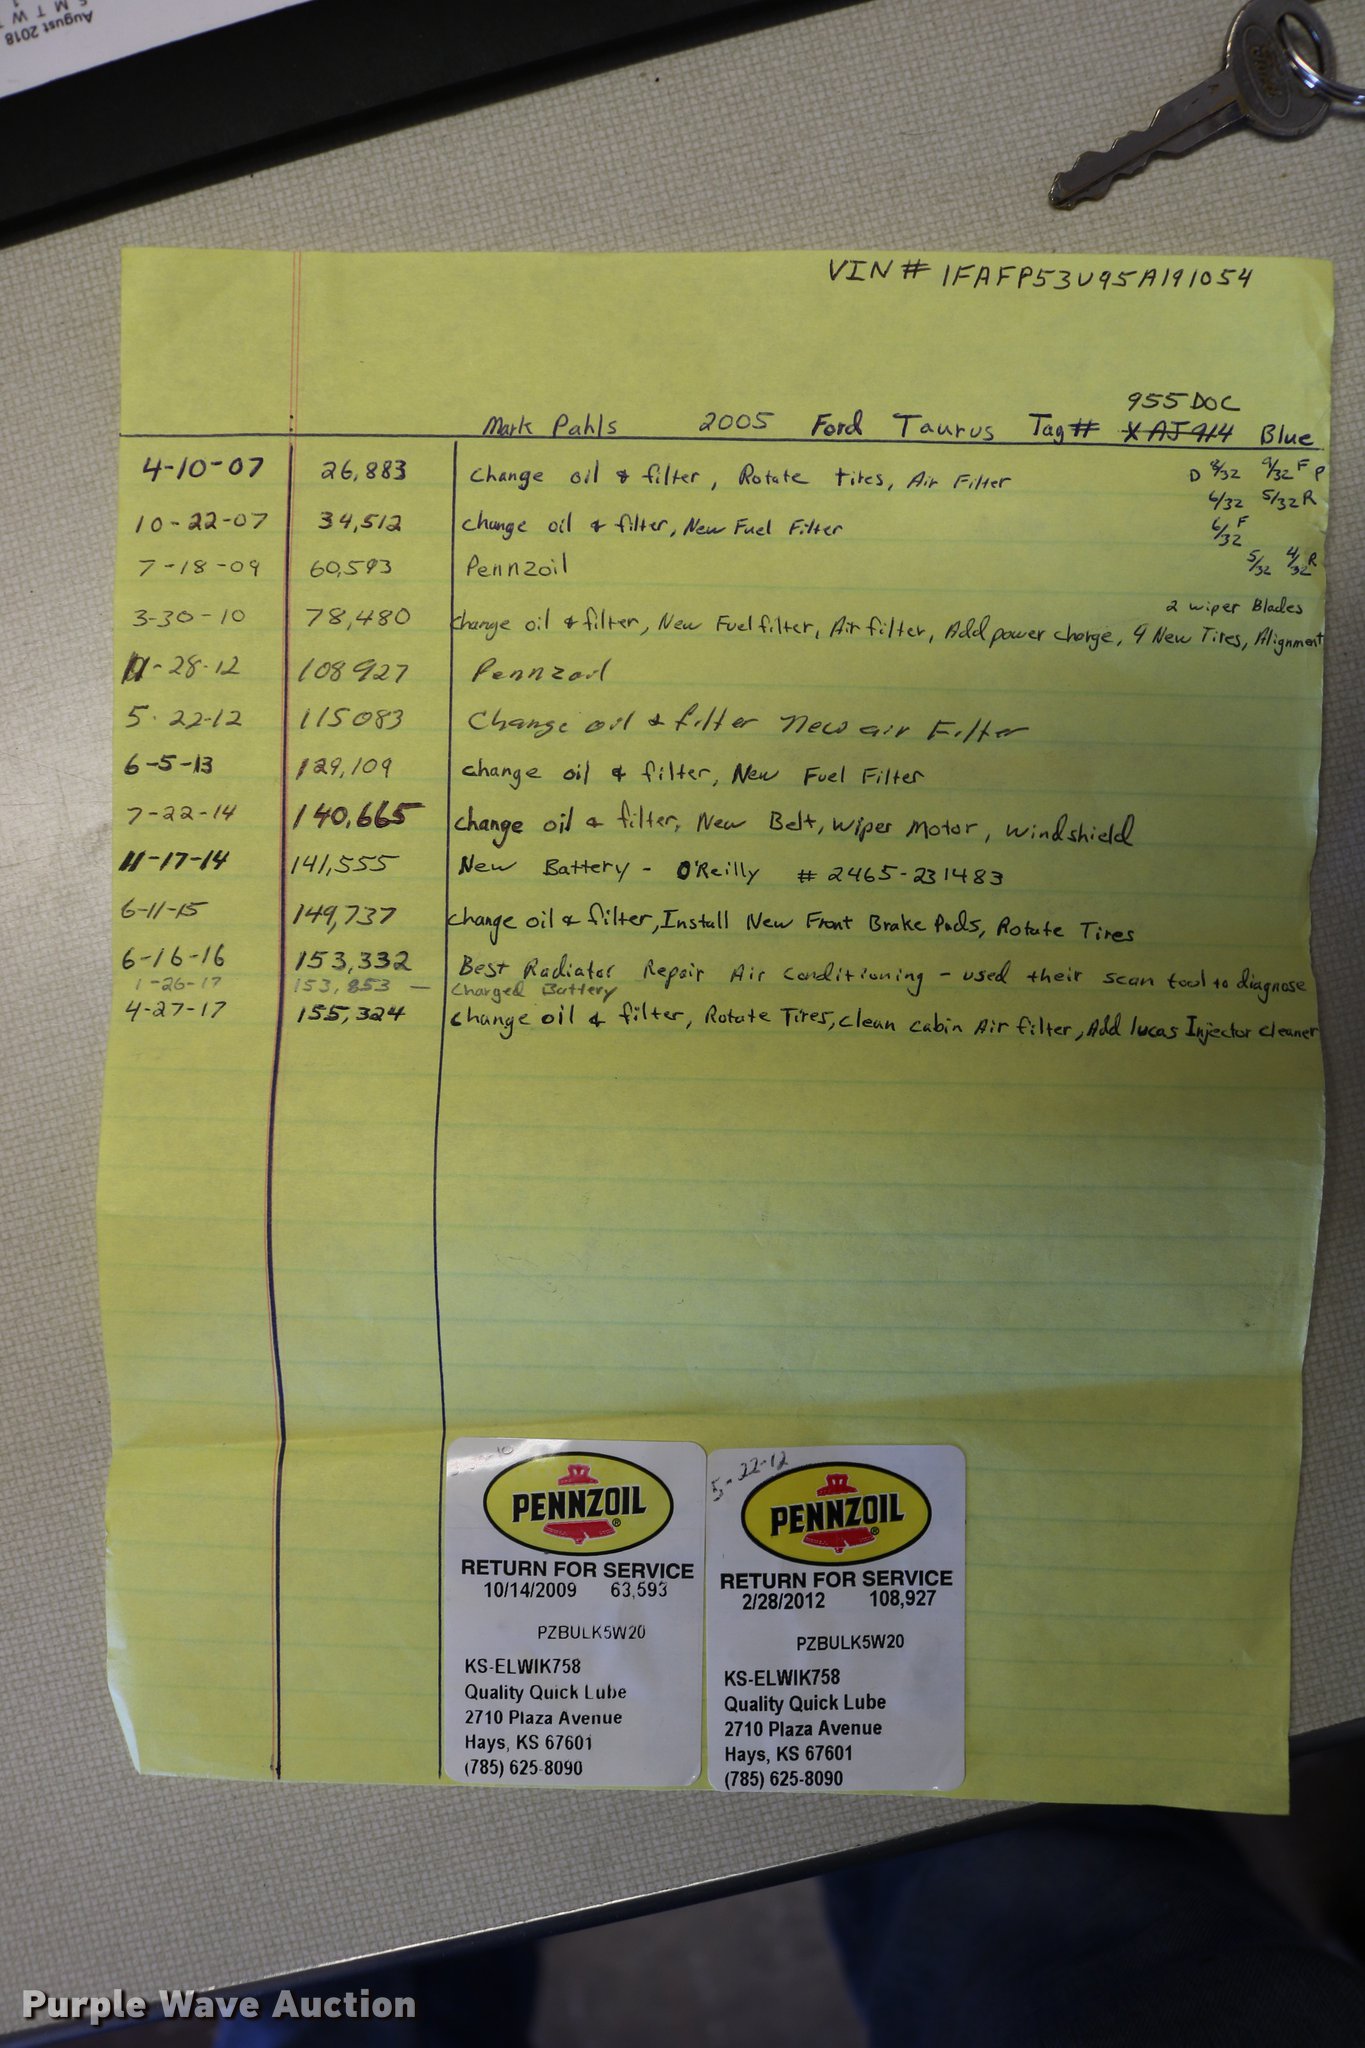 August 2018
S M T W T
1
Ford
VIN # 1FAFP53U95A191054
955 DOC
Mark Pahls 2005 Ford Taurus Tag# XAJ 914 Blue
4-10-07 26,883 Change oil & filter, Rotate tires, Air Filter D 8/32 9/32 F P
6/32 5/32 R
10-22-07 34,512 Change oil & filter, New Fuel Filter 6/32 F
7-18-09 60,593 Pennzoil 5/32 4/32 R
2 wiper Blades
3-30-10 78,480 Change oil & filter, New Fuel filter, Air filter, Add power charge, 4 New Tires, Alignment
11-28-12 108927 Pennzoil
5-22-12 115083 Change oil & filter New air Filter
6-5-13 129,109 Change oil & filter, New Fuel Filter
7-22-14 140,665 Change oil & filter, New Belt, Wiper Motor, Windshield
11-17-14 141,555 New Battery - O'Reilly # 2465-231483
6-11-15 149,737 Change oil & filter, Install New Front Brake Pads, Rotate Tires
6-16-16 153,332 Best Radiator Repair Air Conditioning - used their scan tool to diagnose
1-26-17 153,853 — Charged Battery
4-27-17 155,324 Change oil & filter, Rotate Tires, Clean cabin Air filter, Add Lucas Injector cleaner
PENNZOIL
RETURN FOR SERVICE
10/14/2009 63,593
PZBULK5W20
KS-ELWIK758
Quality Quick Lube
2710 Plaza Avenue
Hays, KS 67601
(785) 625-8090
5-22-12
PENNZOIL
RETURN FOR SERVICE
2/28/2012 108,927
PZBULK5W20
KS-ELWIK758
Quality Quick Lube
2710 Plaza Avenue
Hays, KS 67601
(785) 625-8090
Purple Wave Auction